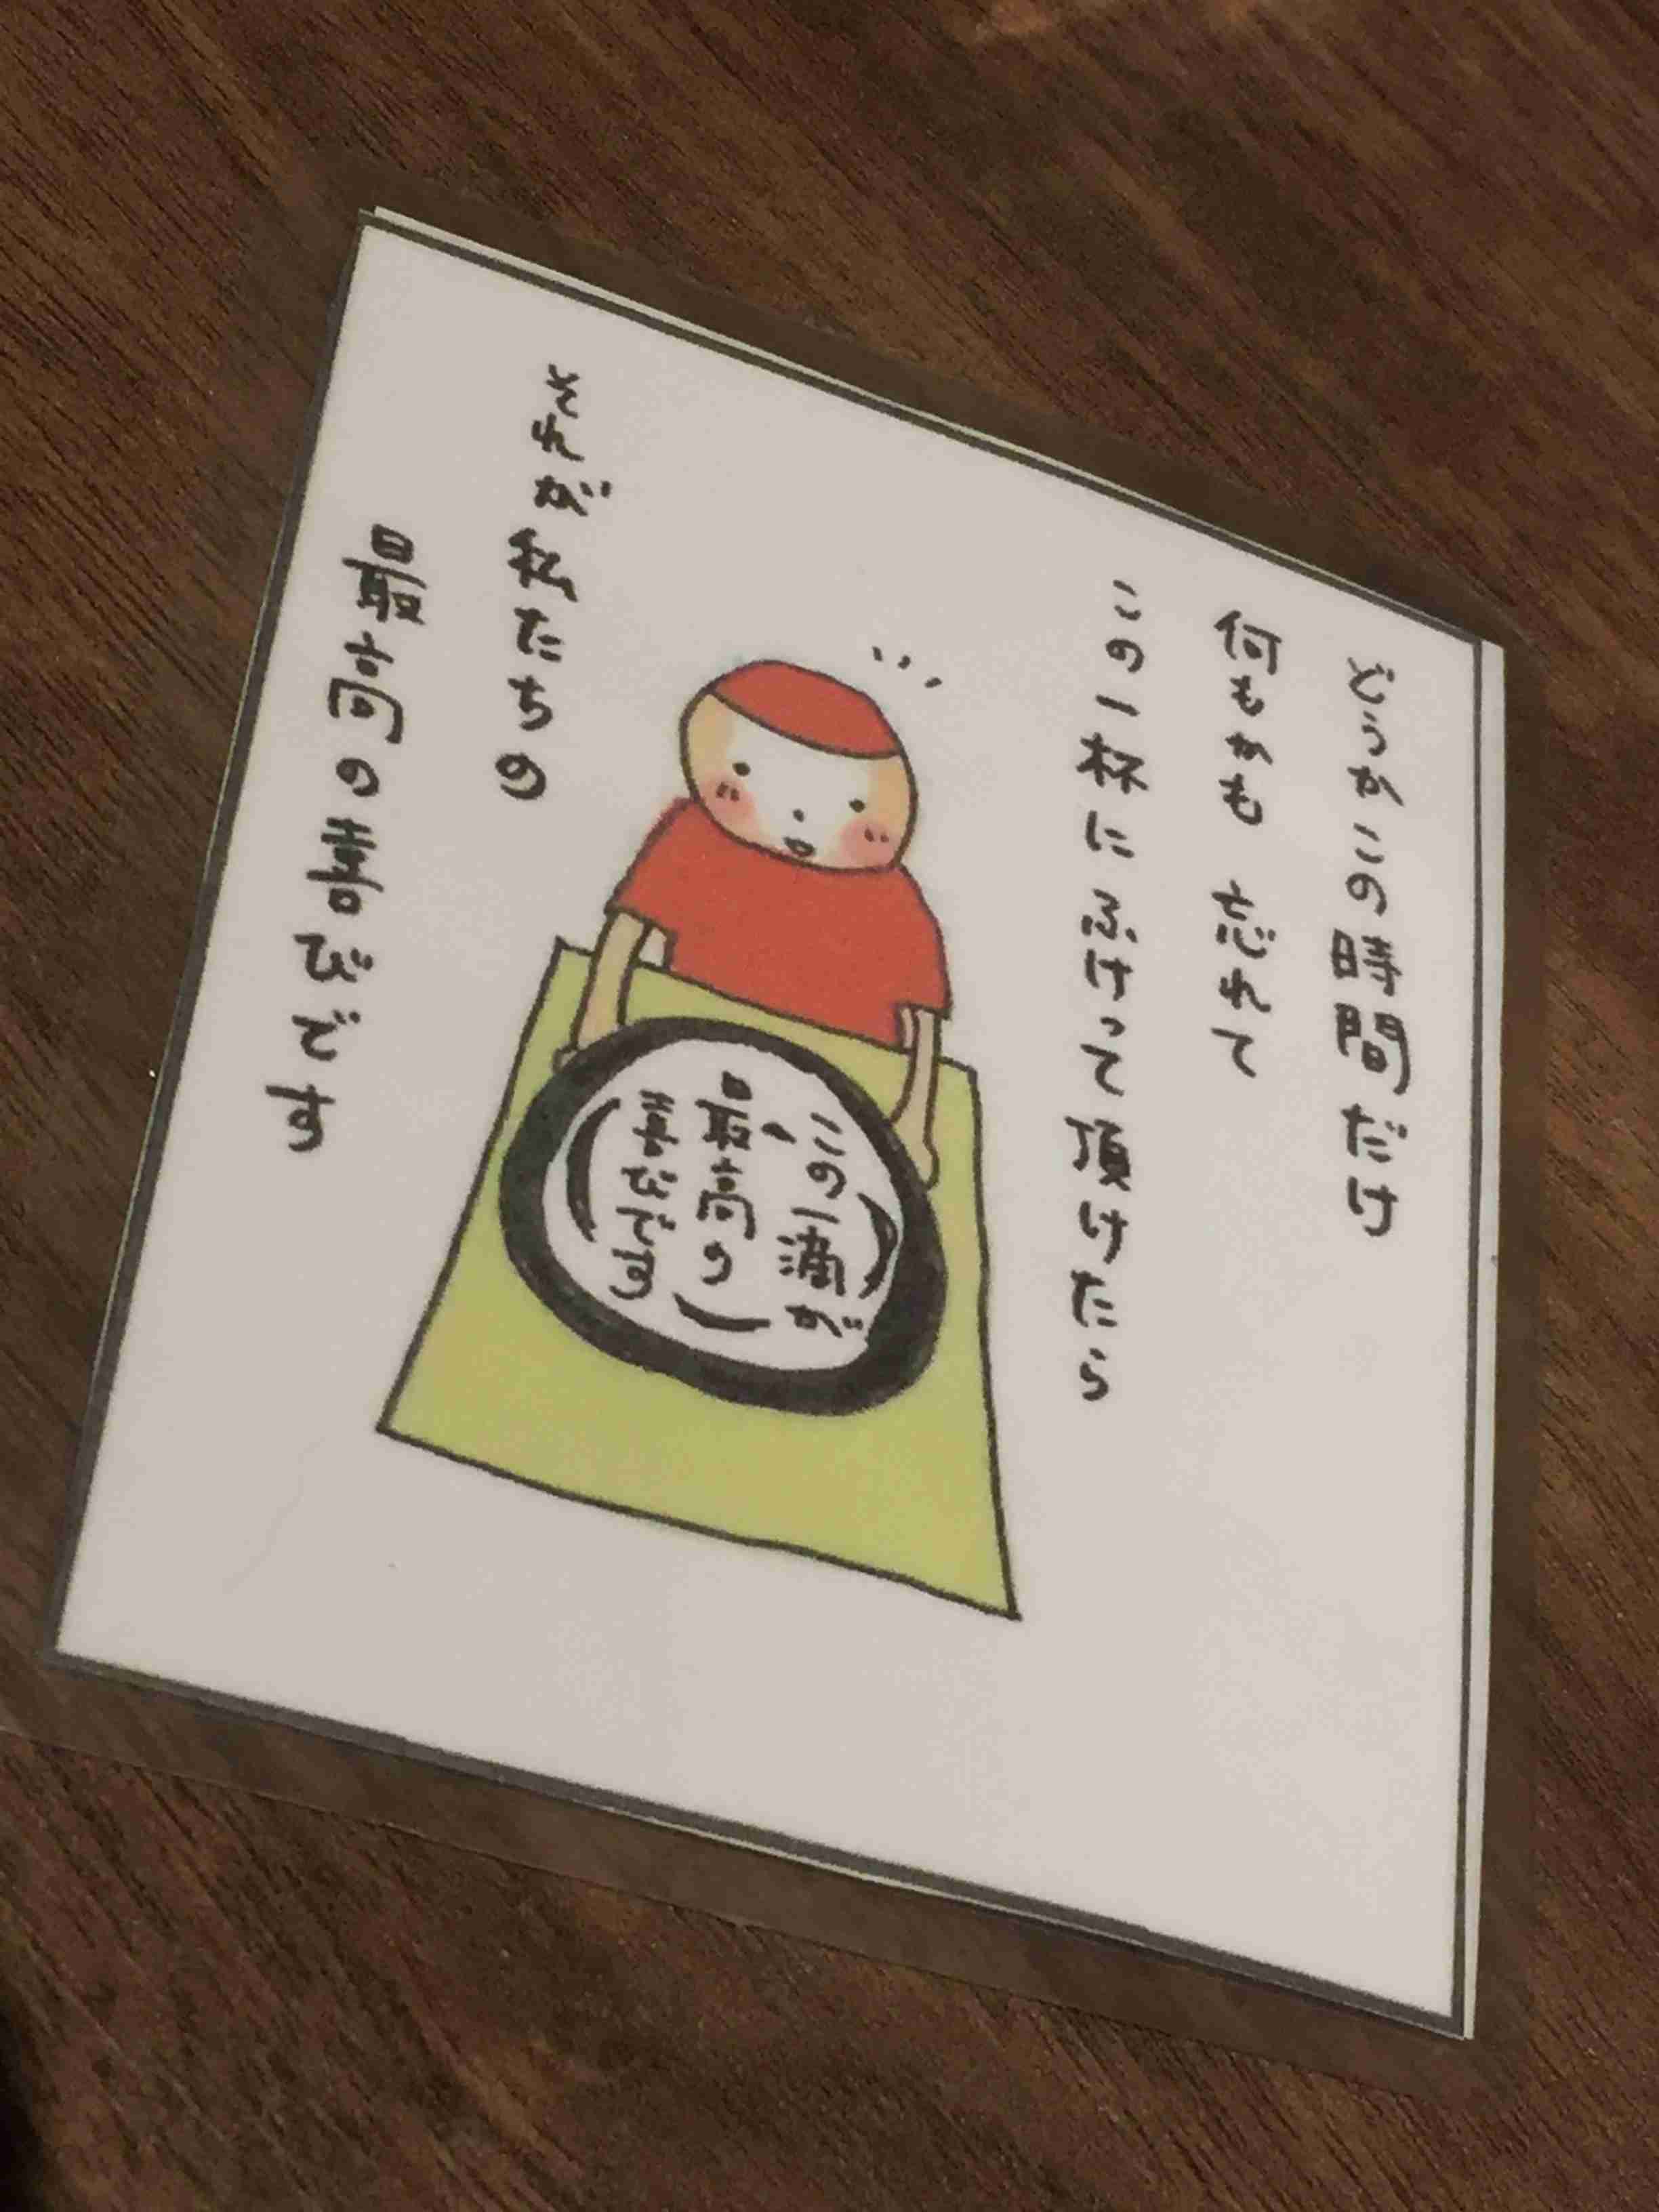 どうかこの時間だけ
何もかも 忘れて
この一杯にふけって頂けたら
この一滴が
最高の
喜びです
それが私たちの
最高の喜びです